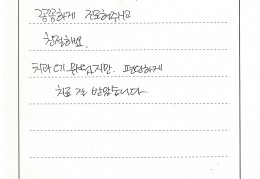 꼼꼼하게 진료해주시고
친절해요.
치과가 무서웠지만. 편안하게
치료 잘 받았습니다.